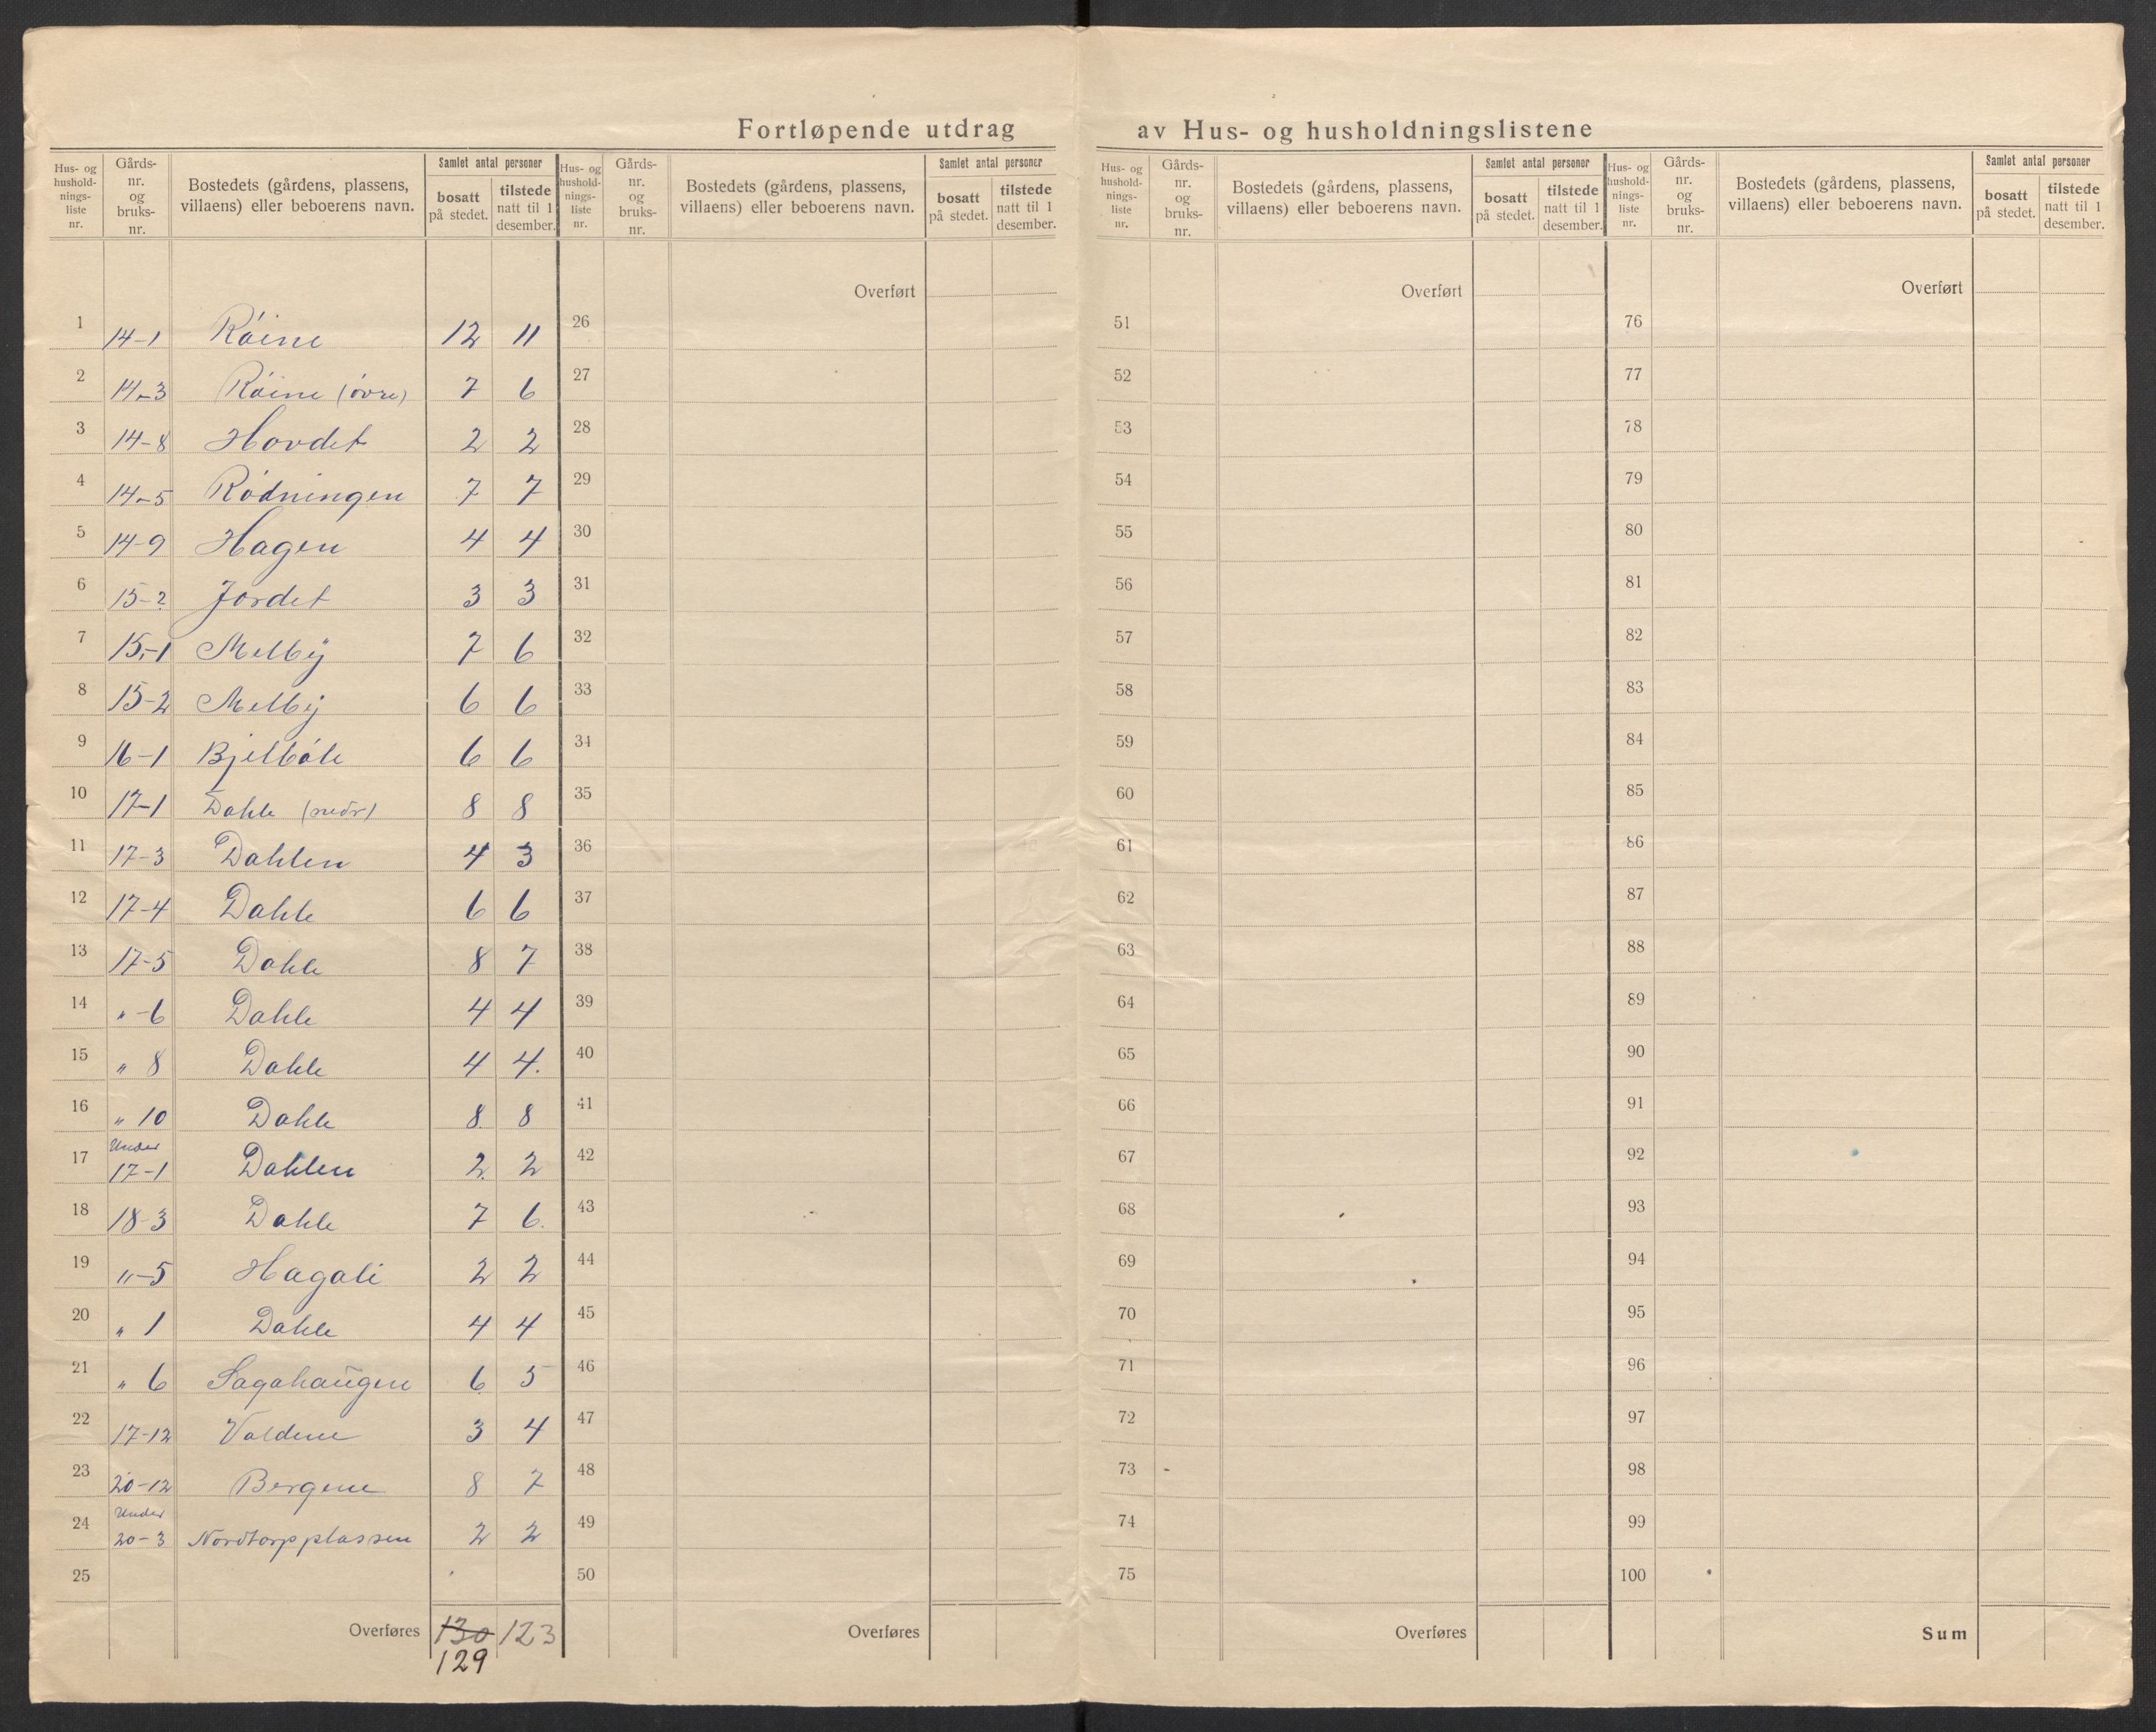 Fortløpende utdrag av Hus- og husholdningslistene
Hus- og hushold- nings- liste nr. | Gårds- nr. og bruks- nr. | Bostedets (gårdens, plassens, villaens) eller beboerens navn. | Samlet antal personer: bosatt på stedet. | tilstede natt til 1 desember.
1 14-1 Röine 12 11
2 14-3 Röine (övre) 7 6
3 14-8 Hovdet 2 2
4 14-5 Rödningen 7 7
5 14-9 Hagen 4 4
6 15-2 Jordet 3 3
7 15-1 Melby 7 6
8 15-2 Melby 6 6
9 16-1 Bjelböle 6 6
10 17-1 Dahle (nedr) 8 8
11 17-3 Dahlen 4 3
12 17-4 Dahle 6 6
13 17-5 Dahle 8 7
14 " -6 Dahle 4 4
15 " 8 Dahle 4 4.
16 " 10 Dahle 8. 8
17 Under 17-1 Dahlen 2. 2
18 18-3 Dahle 7 6.
19 "-5 Hagali 2 2
20 " 1 Dahle 4 4
21 " 6 Sagahaugen 6 5
22 17-12 Voldene 3 4
23 20-12 Bergene 8 7
24 Under 20-3 Nordtorpplassen 2 2
25
Overføres 130 123
129
Hus- og hushold- nings- liste nr. | Gårds- nr. og bruks- nr. | Bostedets (gårdens, plassens, villaens) eller beboerens navn. | Samlet antal personer: bosatt på stedet. | tilstede natt til 1 desember.
Overført
26
27
28
29
30
31
32
33
34
35
36
37
38
39
40
41
42
43
44
45
46
47
48
49
50
Overføres
Hus- og hushold- nings- liste nr. | Gårds- nr. og bruks- nr. | Bostedets (gårdens, plassens, villaens) eller beboerens navn. | Samlet antal personer: bosatt på stedet. | tilstede natt til 1 desember.
Overført
51
52
53
54
55
56
57
58
59
60
61
62
63
64
65
66
67
68
69
70
71
72
73
74
75
Overføres
Hus- og hushold- nings- liste nr. | Gårds- nr. og bruks- nr. | Bostedets (gårdens, plassens, villaens) eller beboerens navn. | Samlet antal personer: bosatt på stedet. | tilstede natt til 1 desember.
Overført
76
77
78
79
80
81
82
83
84
85
86
87
88
89
90
91
92
93
94
95
96
97
98
99
100
Sum